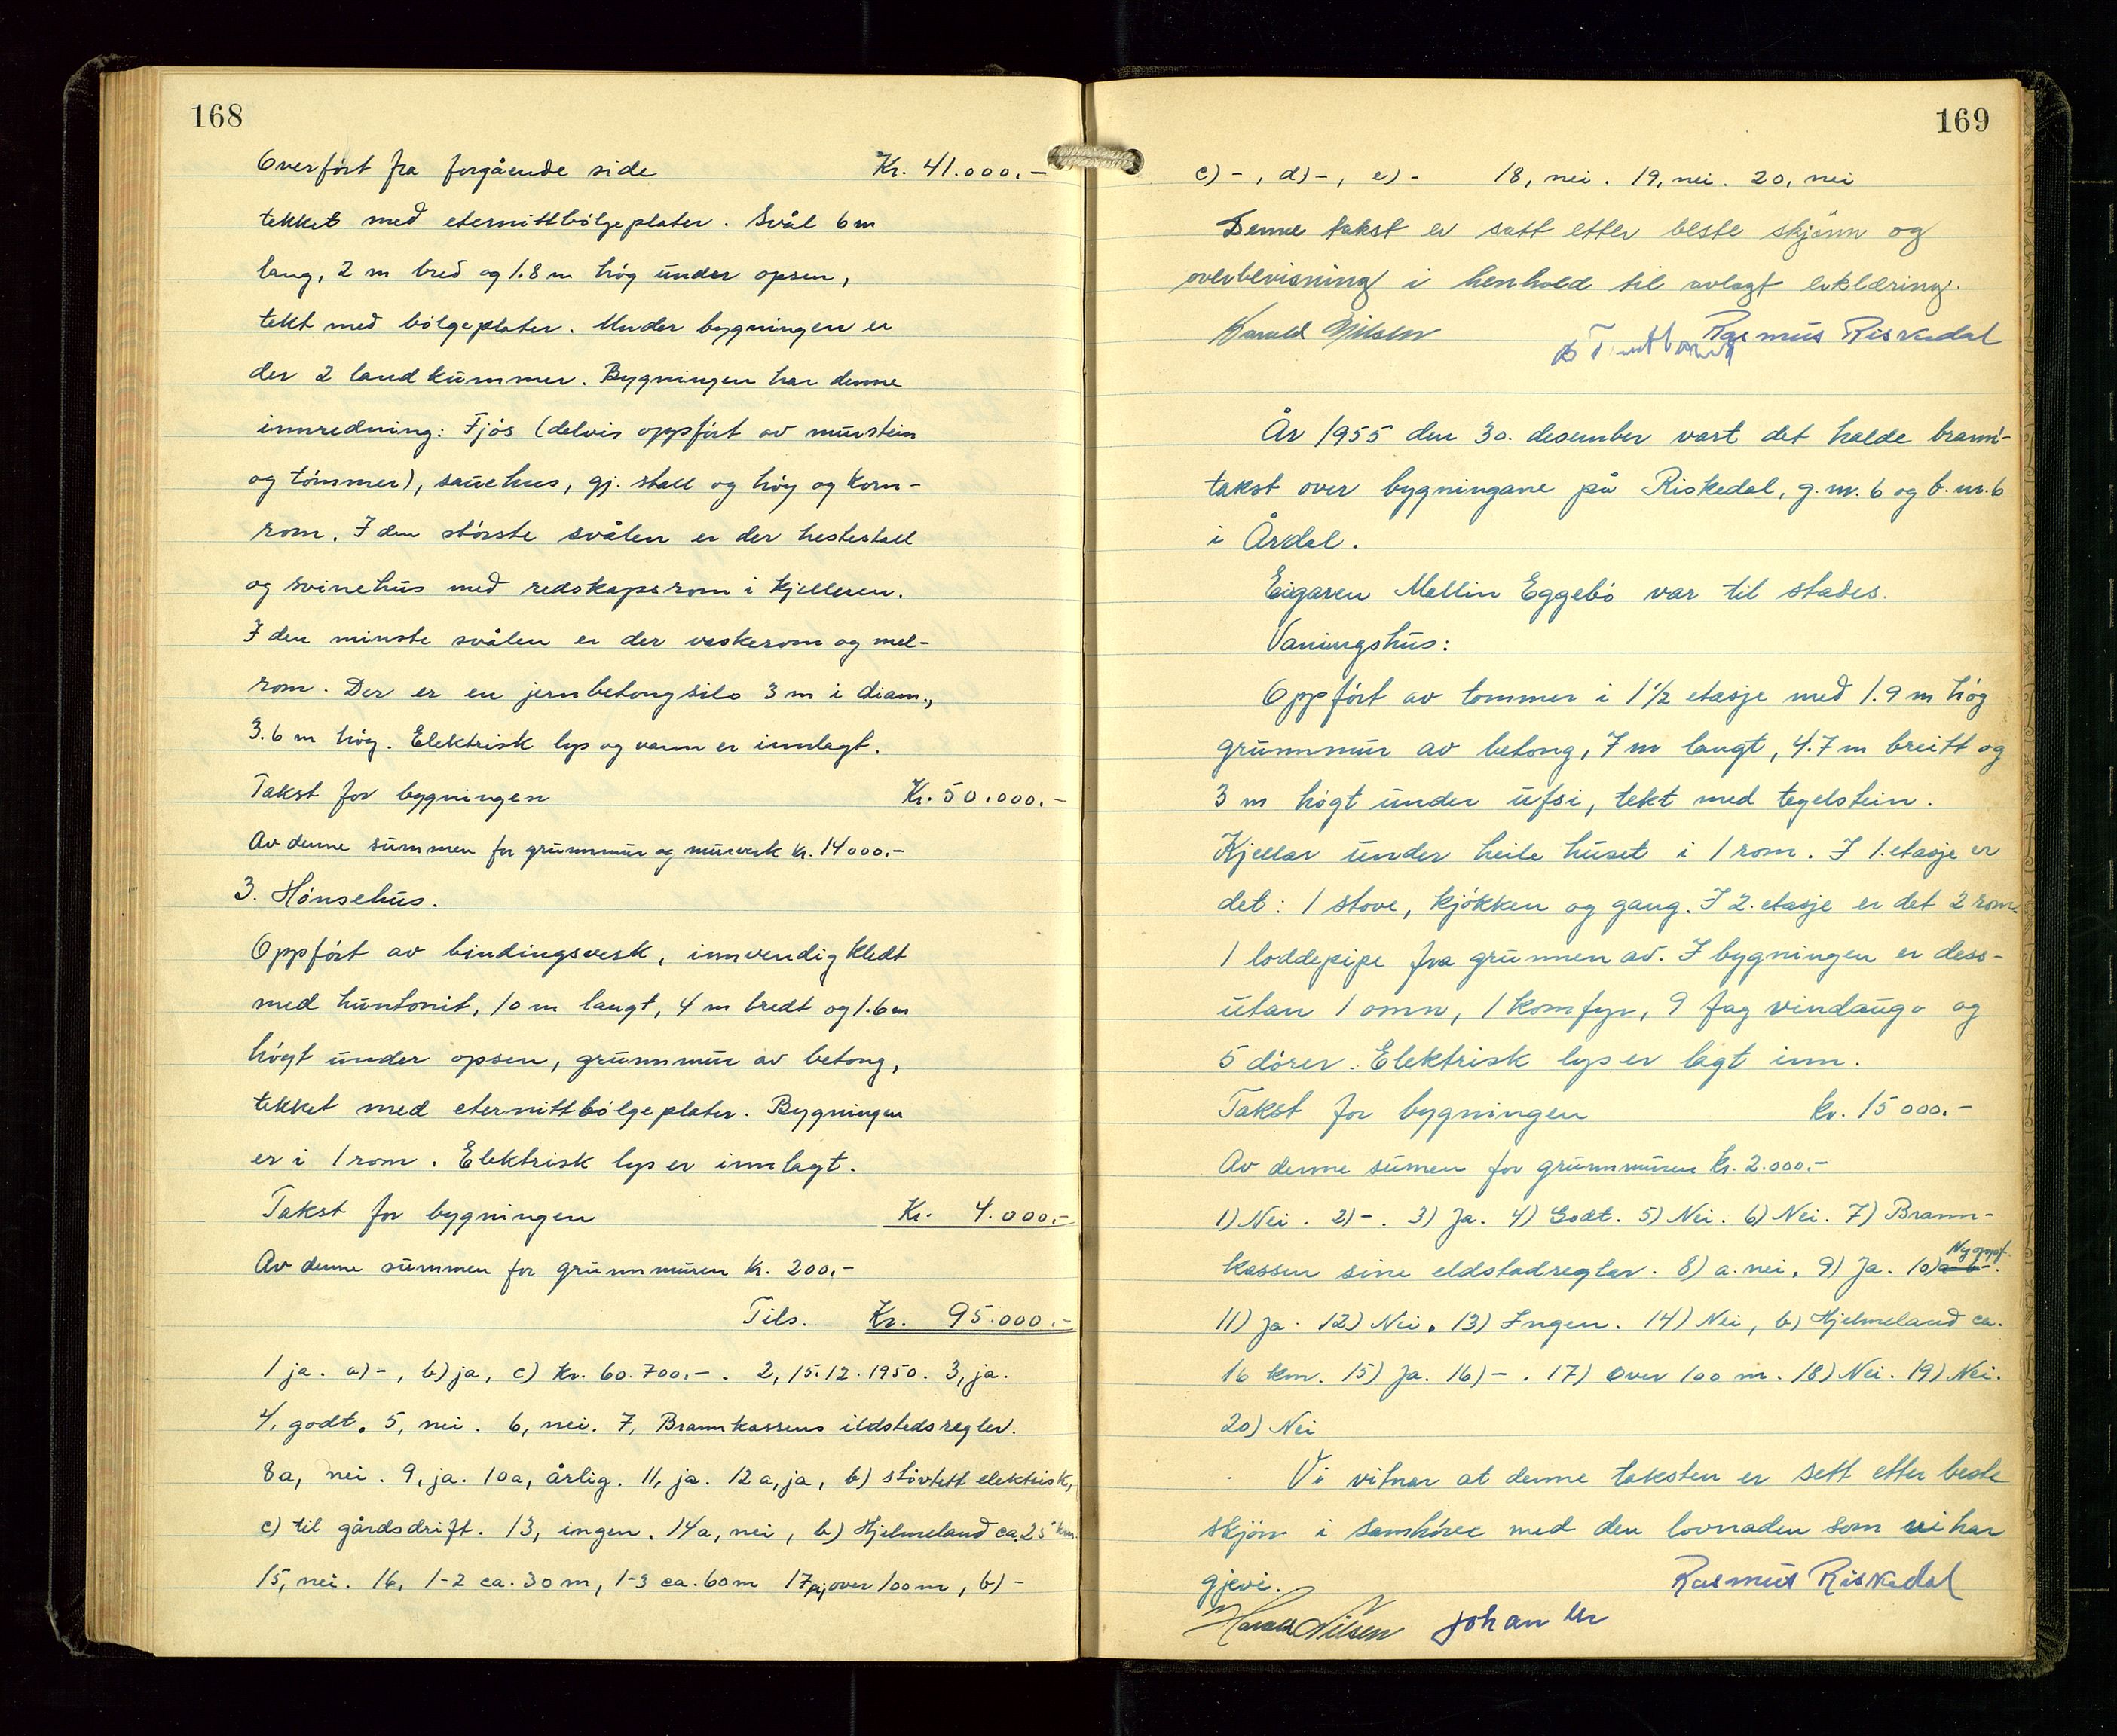 168
Overført fra forgående side Kr. 41.000.-
tekket med eternittbølgeplater. Svål 6 m
lang, 2 m bred og 1.8 m høg under opsen,
tekt med bølgeplater. Under bygningen er
der 2 landkummer. Bygningen har denne
innredning: Fjøs (delvis oppført av murstein
og tømmer), sauehus, gj. stall og høy og korn-
rom. I den største svålen er der hestestall
og svinehus med redskapsrom i kjelleren.
I den minste svålen er der vaskerom og mel-
rom. Der er en jernbetongsilo 3 m i diam.,
3.6 m høg. Elektrisk lys og vann er innlagt.
Takst for bygningen Kr. 50.000.-
Av denne summen for grunnmur og murverk kr. 14000.-
3. Hønsehus.
Oppført av bindingsverk, innvendig kledt
med huntonit, 10 m langt, 4 m bredt og 1.6 m
høgt under opsen, grunnmur av betong,
tekket med eternittbølgeplater. Bygningen
er i 1 rom. Elektrisk lys er innlagt.
Takst for bygningen Kr. 4.000.-
Av denne summen for grunnmuren kr. 200.-
Tils. Kr. 95.000.-
1 ja. a)-, b) ja, c) kr. 60.700.-. 2, 15.12.1950. 3, ja.
4, godt. 5, nei. 6, nei. 7, Brannkassens ildstedsregler.
8a, nei. 9, ja. 10a, årlig. 11, ja. 12a, ja, b) støvtett elektrisk,
c) til gårdsdrift. 13, ingen. 14a, nei, b) Hjelmeland ca. 25 km.
15, nei. 16, 1-2 ca. 30 m, 1-3 ca. 60 m 17, a) over 100 m, b) -
169
c) -, d) -, e) - 18, nei. 19, nei. 20, nei
Denne takst er satt etter beste skjønn og
overbevisning i henhold til avlagt erklæring.
Harald Nilsen Rasmus Riskedal
År 1955 den 30. desember vart det halde brann-
takst over bygningane på Riskedal, g.nr. 6 og b.nr. 6
i Årdal.
Eigaren Mallin Eggebø var til stades.
Vaningshus:
Oppført av tømmer i 1 1/2 etasje med 1.9 m høg
grunnmur av betong, 7 m langt, 4.7 m breitt og
3 m høgt under ufsi, tekt med tegelstein.
Kjellar under heile huset i 1 rom. I 1. etasje er
det: 1 stove, kjøkken og gang. I 2. etasje er det 2 rom.
1 loddepipe fra grunnen av. I bygningen er dess-
utan 1 omn, 1 komfyr, 9 fag vindaugo og
5 dører. Elektrisk lys er lagt inn.
Takst for bygningen kr. 15000.-
Av denne sumen for grunnmuren kr. 2.000.-
1) Nei. 2) -. 3) Ja. 4) Godt. 5) Nei. 6) Nei. 7) Brann-
kassen sine eldstadreglar. 8) a. nei. 9) Ja. 10) Ny oppf.
11) Ja. 12) Nei. 13) Ingen. 14) Nei, b) Hjelmeland ca.
16 km. 15) Ja. 16) -. 17) Over 100 m. 18) Nei. 19) Nei.
20) Nei
Vi vitnar at denne taksten er sett etter beste
skjøn i samhøve med den lovnaden som vi har
gjevi. Rasmus Riskedal
Harald Nilsen Johan Ur